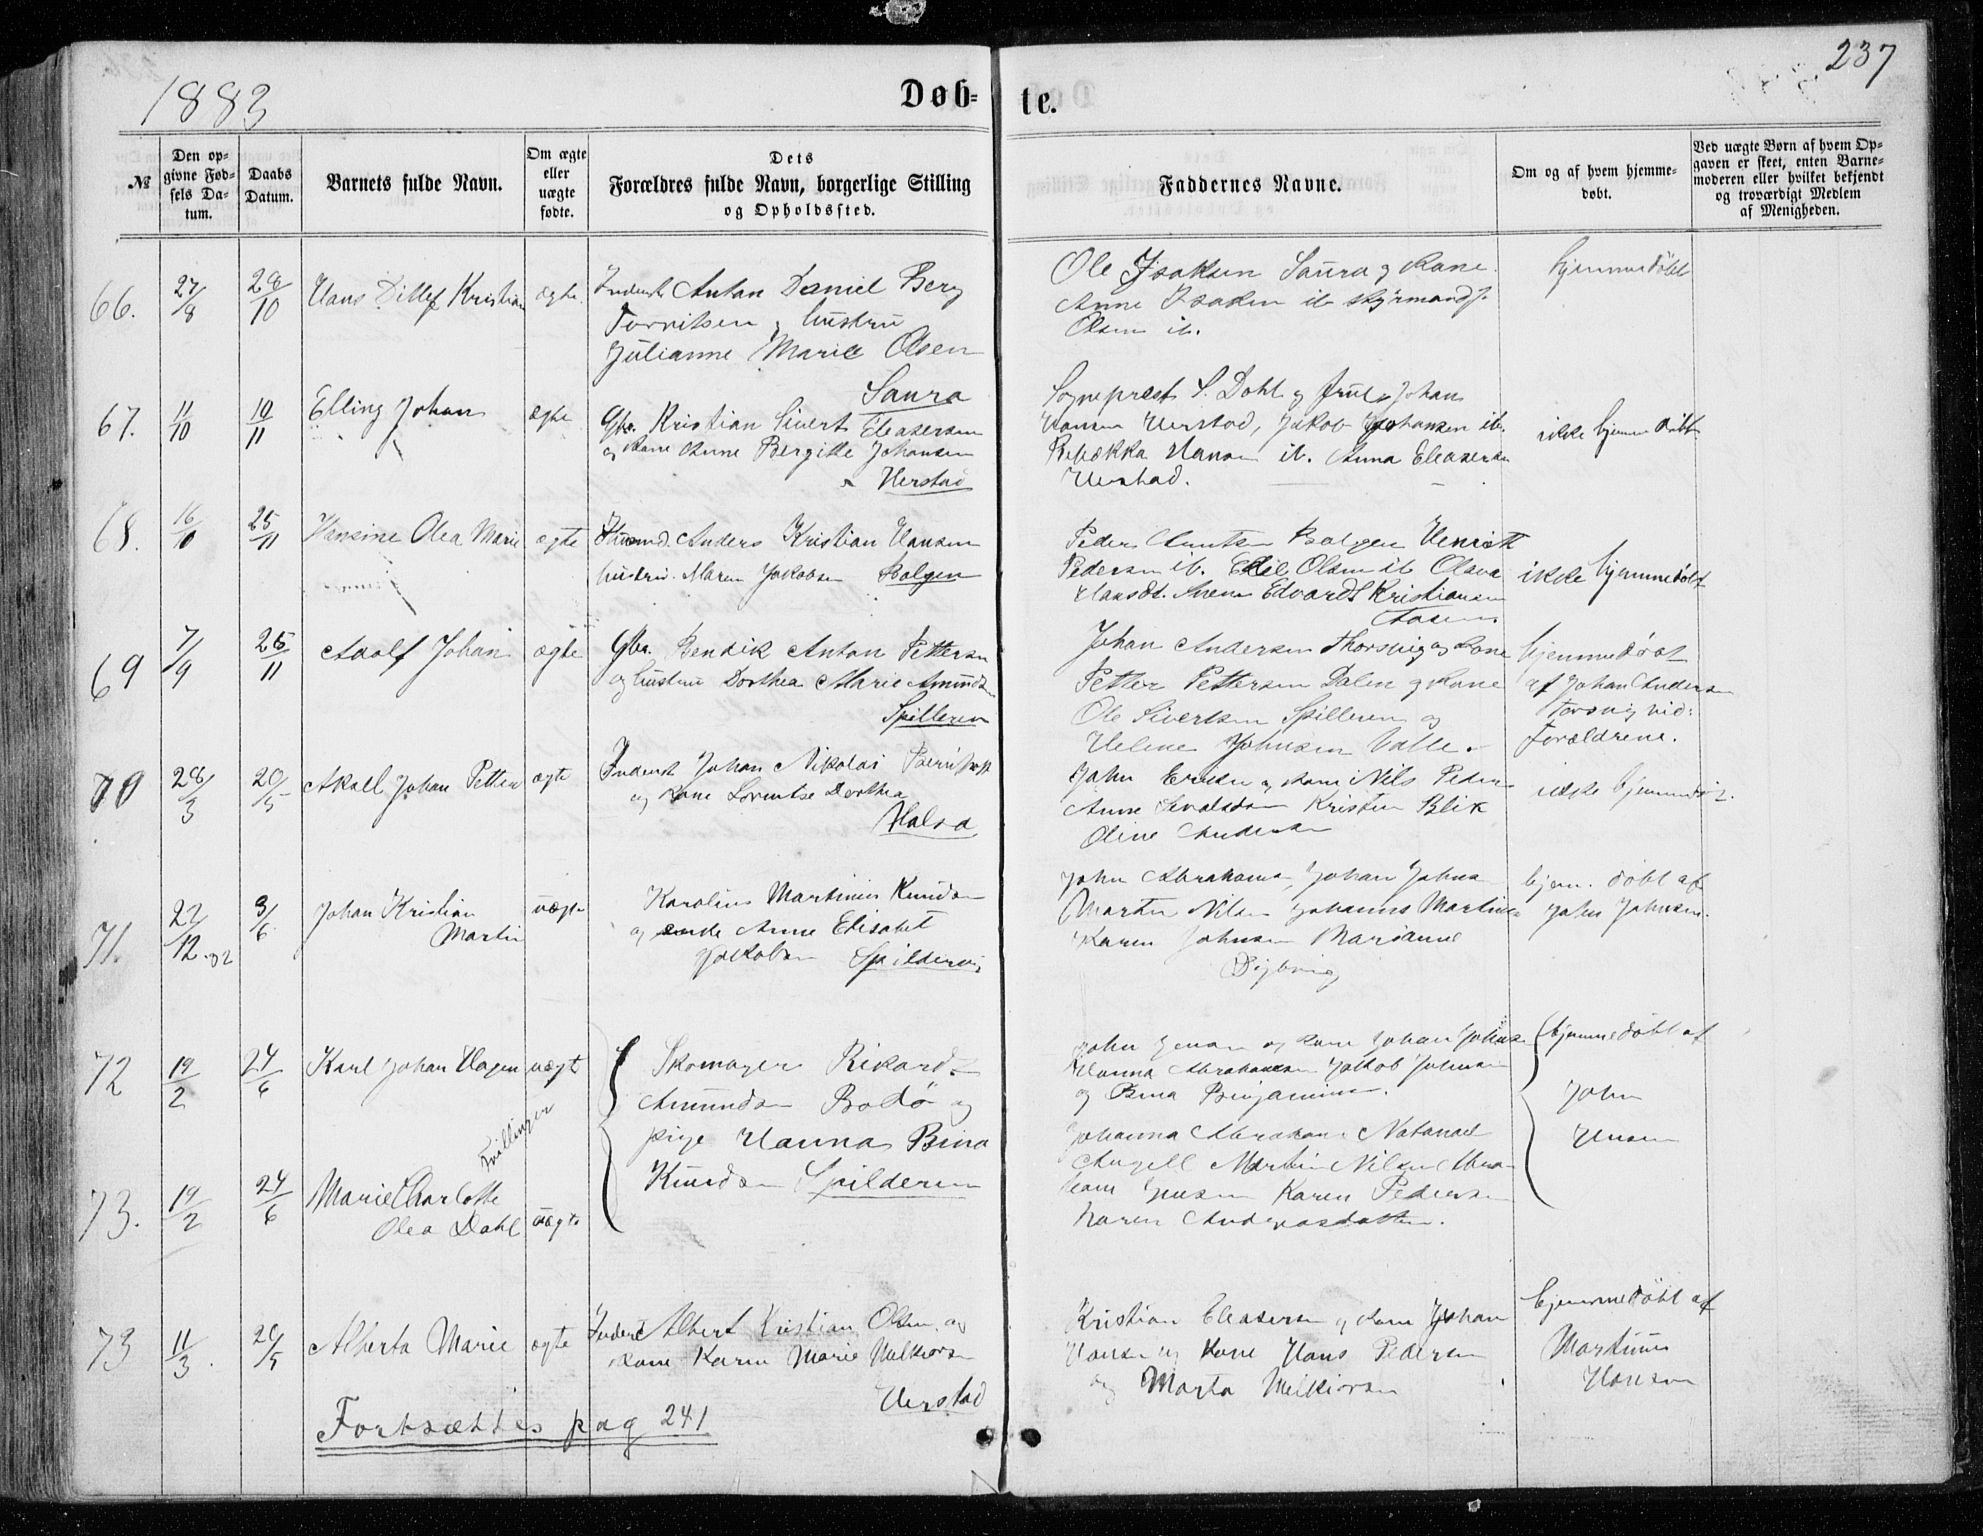 237
1883
Døb-
te.
№
Den op-
givne Fød-
sels Da-
tum.
Daabs
Datum.
Barnets fulde Navn.
Om ægte
eller
uægte
fødte.
Dets
Forældres fulde Navn, borgerlige Stilling
og Opholdssted.
Faddernes Navne.
Om og af hvem hjemme-
døbt.
Ved uægte Børn af hvem Op-
gaven er skeet, enten Barne-
moderen eller hvilket bekjendt
og troværdigt Medlem
af Menigheden.
66.
27/8
28/10
Hans Ditlef Kristian
ægte
Inderst Anton Daniel Berg
og Hustru
Julianne Marie Olsen
Saura
Ole Isaksen Saura og Kone
Anne Isaksen ib.
Olsen ib.
hjemmedøbt
67.
11/10
10/11
Elling Johan
ægte
Gbr. Kristian Sivert Eleasersen
og Kone Anne Bergitte Johansen
Herstad
Sogneprest S. Dahl og Frue, Johan
Hansen Herstad, Jakob Johansen ib.
Rebækka Hansen ib. Anna Eleasersen
Herstad.
ikke hjemmedøbt
68.
16/10
25/11
Hansine Olea Marie
ægte
Husmd. Anders Kristian Hansen
hustru Maren Jakobsen Bolgen
Peder Knutsen Bolgen Henrik
Pedersen ib. Edil Olsen ib Olava
Hansdt. Edvard Kristiansen
ikke hjemmedøbt
69
7/9
25/11
Adolf Johan
ægte
Gbr. Bendik Anton Pettersen
og hustru Dorthea Marie Amundsen
Spilderen
Johan Andersen Thorsvig og Kone
Petter Pettersen Dalen og Kone
Ole Sivertsen Spilderen og
Helene Johnsen Valle.
hjemmedøbt
af Johan Andersen
Torsvig vid:
Forældrene.
70
28/3
20/5
Johan Petter
ægte
Inderst Johan Nikolai
og Kone Lorentse Dorthea
Halsa
John Ersen og Kone Nils Peder
Anne Kristen Blik
Oline Andersen
ikke hjemmedøbt.
71.
22/12.82
3/6
Johan Kristian
Martin
uægte
Karolius Martinius Knudsen
og enke Anne Elisabet
Jakobsen Spildervig
John Abrahams, Johan Johns
Martin Nilsen Johannes Martinsen
Karen Johnsen Marianne
Digbvig
hjem. døbt af
John Johnsen.
72
19/2
24/6
Karl Johan Hagen
uægt
Skomager Rikard
Amundsen Bodø og
pige Hanna Bina
Knudsen Spilderen
John Jensen og Kone Johan Johnsen
Hanna Abrahamsen Jakob Johnsen
og Bina Benjaminsen.
hjemmedøbt af
John
Jensen
Tvillinger
73.
19/2
24/6
Marie Charlotte
Olea Dahl
uægte
Johanna Abraham Natanael
Angell Martin Nilsen Abra-
ham Jensen Karen Pedersen
Karen Andreasdatter.
73
11/3.
20/5
Alberta Marie
ægte
Inderst Albert Kristian Olsen og
Kone Karen Marie Melkiorsen
Herstad
Kristian Eleasersen og Kone Johan
Hansen og Kone Hans Pedersen
og Marta Melkiorsen
hjemmedøbt af
Martinus
Hansen
Fortsættes pag 241